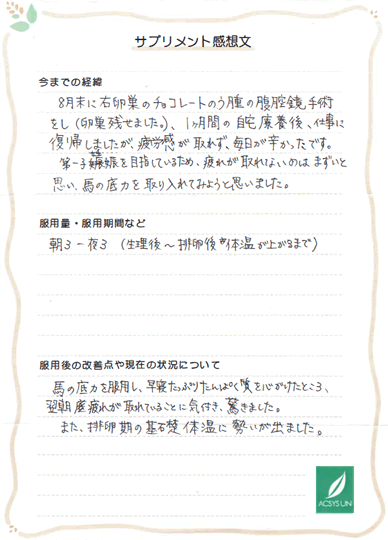 サプリメント感想文
今までの経緯
8月末に右卵巣のチョコレートのう腫の腹腔鏡手術
をし(卵巣残せました。)、1ヶ月間の自宅療養後、仕事に
復帰しましたが、疲労感が取れず、毎日が辛かったです。
第一子妊娠を目指しているため、疲れが取れないのはまずいと
思い、馬の底力を取り入れてみようと思いました。
服用量・服用期間など
朝3-夜3 (生理後〜排卵後体温が上がるまで)
服用後の改善点や現在の状況について
馬の底力を服用し、早寝たっぷりたんぱく質を心がけたところ、
翌朝疲れが取れていることに気付き、驚きました。
また、排卵期の基礎体温に勢いが出ました。
ACSYSUN